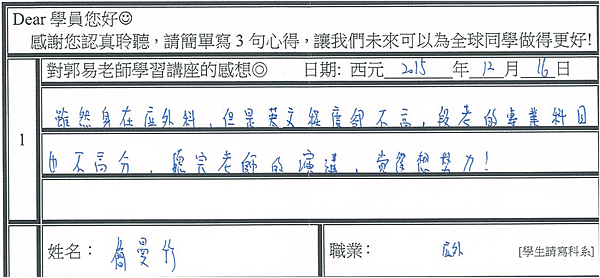 Dear 學員您好☺
感謝您認真聆聽，請簡單寫 3 句心得，讓我們未來可以為全球同學做得更好!
對郭易老師學習講座的感想◎ 日期: 西元 2015 年 12 月 16 日
1
雖然身在應外科，但是英文程度卻不高，段考的專業科目
也不高分，聽完老師的演講，覺得想努力！
姓名： 簡曼竹 職業： 應外 [學生請寫科系]